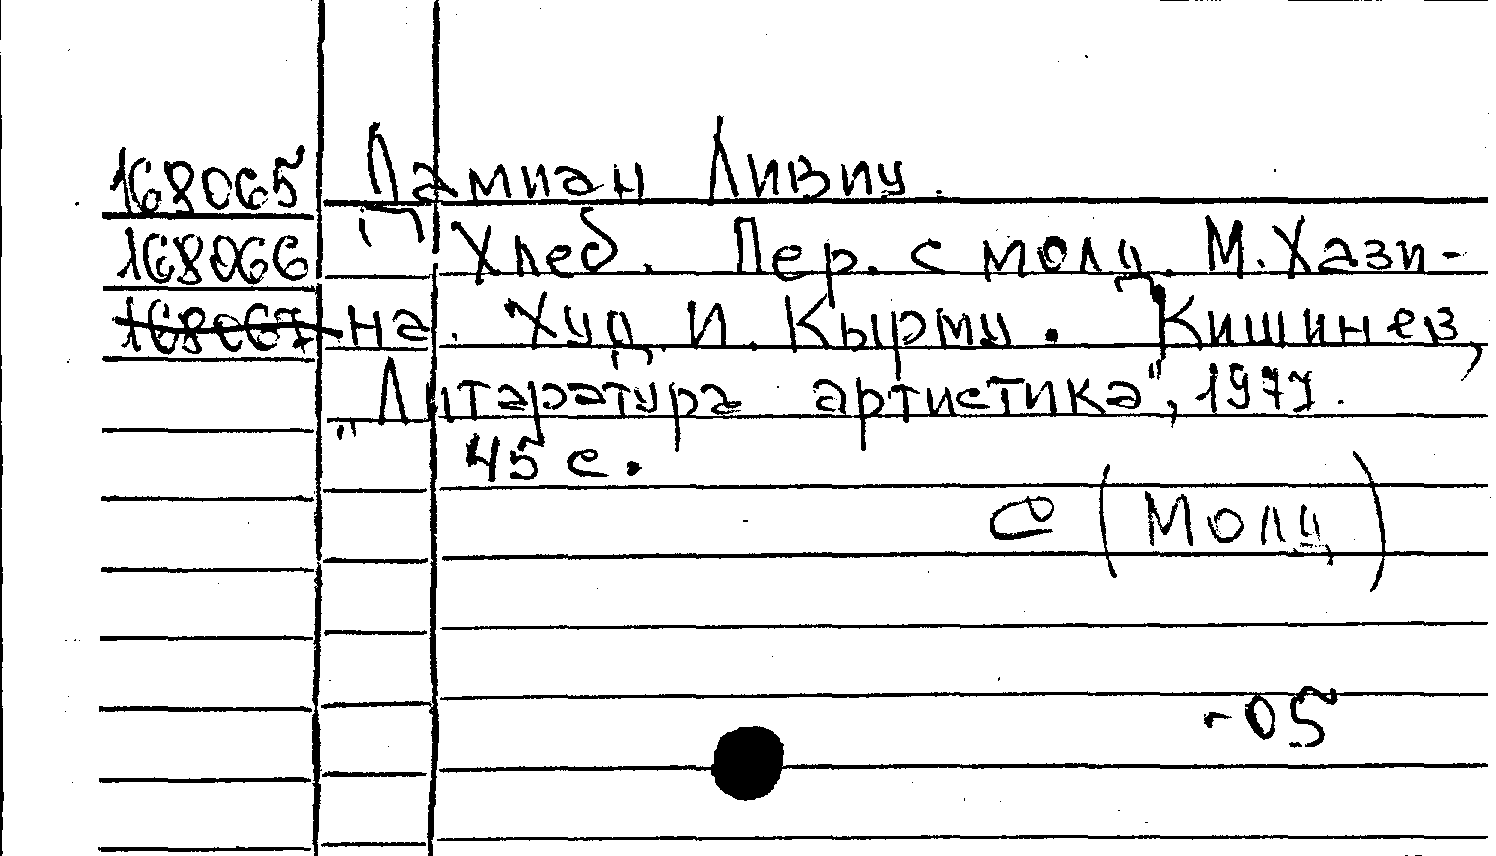 168065 Дамиан Ливиу.
168066 Хлеб. Пер. с молд. М. Хази-
168067 на. Худ. И. Кырму. Кишинев,
"Литаратура артистика", 1977.
45 с.
С (Молд)
-05